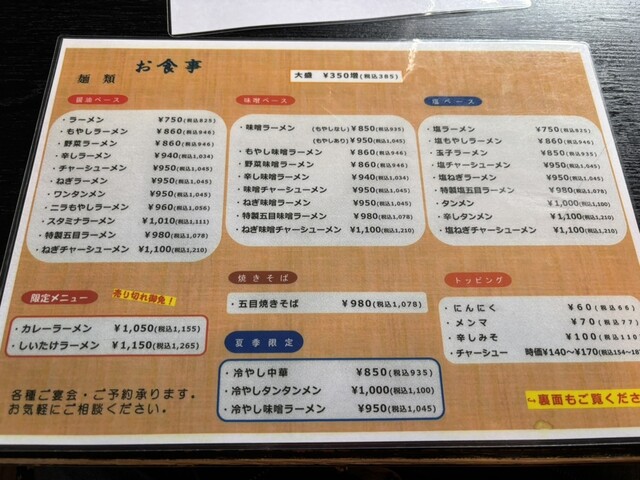 お食事
麺類
大盛 ¥350増(税込385)
醤油ベース
・ラーメン ¥750(税込825)
・もやしラーメン ¥860(税込946)
・野菜ラーメン ¥860(税込946)
・辛しラーメン ¥940(税込1,034)
・チャーシューメン ¥950(税込1,045)
・ねぎラーメン ¥950(税込1,045)
・ワンタンメン ¥950(税込1,045)
・ニラもやしラーメン ¥960(税込1,056)
・スタミナラーメン ¥1,010(税込1,111)
・特製五目ラーメン ¥980(税込1,078)
・ねぎチャーシューメン ¥1,100(税込1,210)
味噌ベース
・味噌ラーメン (もやしなし)¥850(税込935)
(もやしあり)¥950(税込1,045)
・もやし味噌ラーメン ¥860(税込946)
・野菜味噌ラーメン ¥860(税込946)
・辛し味噌ラーメン ¥940(税込1,034)
・味噌チャーシューメン ¥950(税込1,045)
・ねぎ味噌ラーメン ¥950(税込1,045)
・特製五目味噌ラーメン ¥980(税込1,078)
・ねぎ味噌チャーシューメン ¥1,100(税込1,210)
塩ベース
・塩ラーメン ¥750(税込825)
・塩もやしラーメン ¥860(税込946)
・玉子ラーメン ¥850(税込935)
・塩チャーシューメン ¥950(税込1,045)
・塩ねぎラーメン ¥950(税込1,045)
・特製塩五目ラーメン ¥980(税込1,078)
・タンメン ¥1,000(税込1,100)
・辛しタンメン ¥1,100(税込1,210)
・塩ねぎチャーシューメン ¥1,100(税込1,210)
限定メニュー
売り切れ御免!
・カレーラーメン ¥1,050(税込1,155)
・しいたけラーメン ¥1,150(税込1,265)
焼きそば
・五目焼きそば ¥980(税込1,078)
夏季限定
・冷やし中華 ¥850(税込935)
・冷やしタンタンメン ¥1,000(税込1,100)
・冷やし味噌ラーメン ¥950(税込1,045)
トッピング
・にんにく ¥60(税込66)
・メンマ ¥70(税込77)
・辛しみそ ¥100(税込110)
・チャーシュー 時価¥140~¥170(税込154~18
各種ご宴会・ご予約承ります。
お気軽にご相談ください。
裏面もご覧くださ